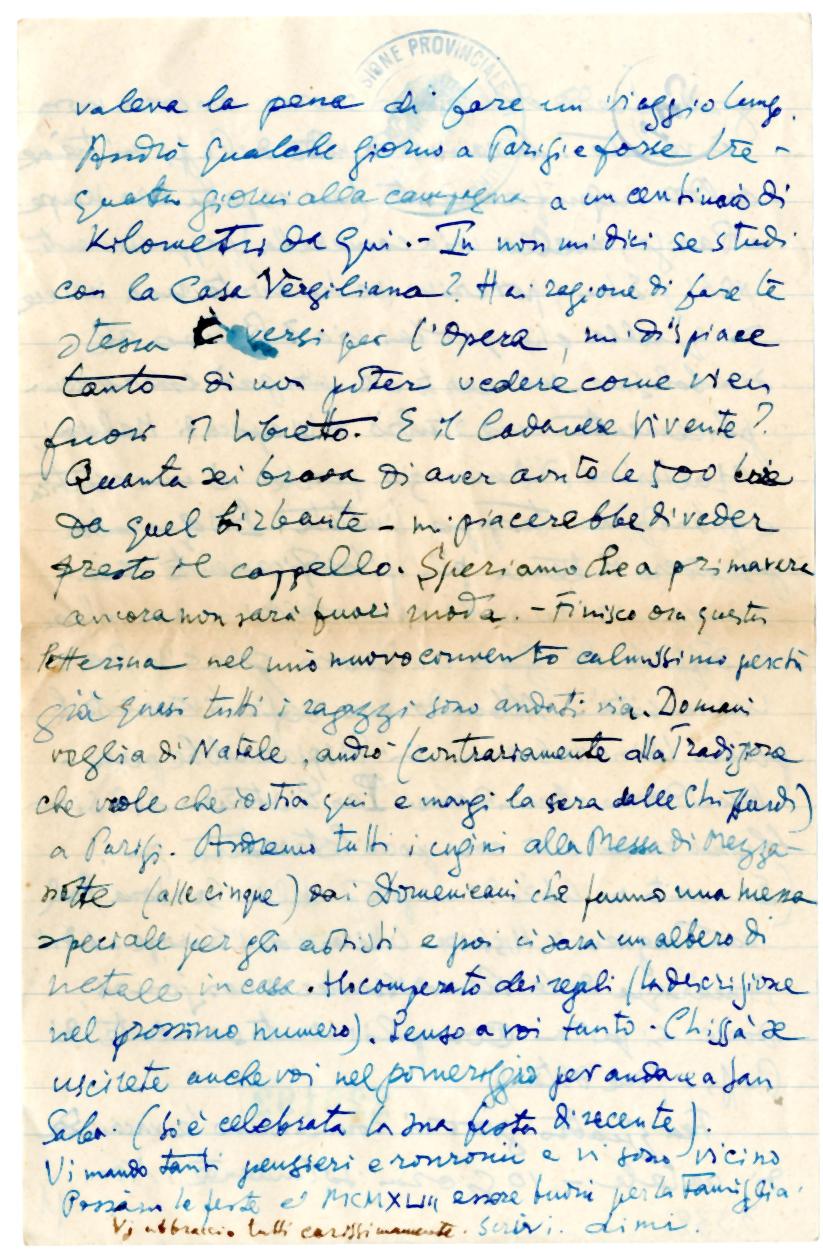 SIONE PROVINCIALE
valeva la pena di fare un viaggio lungo.
Andrò qualche giorno a Parigi e forse tre -
quattro giorni alla campagna a un centinaio di
Kilometri da qui. - Tu non mi dici se studi
con la Casa Vergiliana? Hai ragione di fare te
stessa i versi per l'opera, mi dispiace
tanto di non poter vedere come vien
fuori il libretto. E il Cadavere Vivente?
Quanto sei brava di aver avuto le 500 lire
da quel birbante - mi piacerebbe di veder
presto il cappello. Speriamo che a primavera
ancora non sarà fuori moda. - Finisco ora questa
letterina nel mio nuovo convento calmissimo perchè
già quasi tutti i ragazzi sono andati via. Domani
veglia di Natale, andrò (contrariamente alla Tradizione
che vuole che io stia qui e mangi la sera dalle)
a Parigi. Andremo tutti i cugini alla Messa di Mezza-
notte (alle cinque) dai Domenicani che fanno una messa
speciale per gli artisti e poi ci sarà un albero di
natale in casa. Ho comperato dei regali (la descrizione
nel prossimo numero). Penso a voi tanto. Chissà se
uscirete anche voi nel pomeriggio per andare a San
Saba. (Si è celebrata la sua festa di recente).
Vi mando tanti pensieri e ronronii e vi sono vicino
Possano le feste e' MCMXLIII essere buoni per la Famiglia.
Vi abbraccio tutti carissimamente. Scrivi. Dimi.